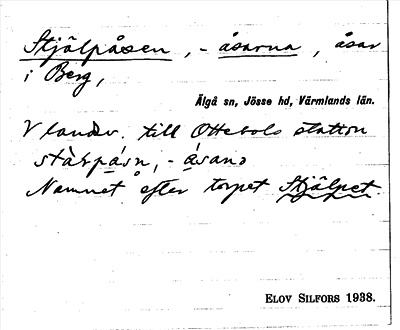 Stjälpåsen, - åsarna, åsar
i Berg,
Älgå sn, Jösse hd, Värmlands län.
V landsv. till Ottebols station
stàrpá̱sn, - á̱sana
Namnet efter torpet Stjälpet.
ELOV SILFORS 1938.